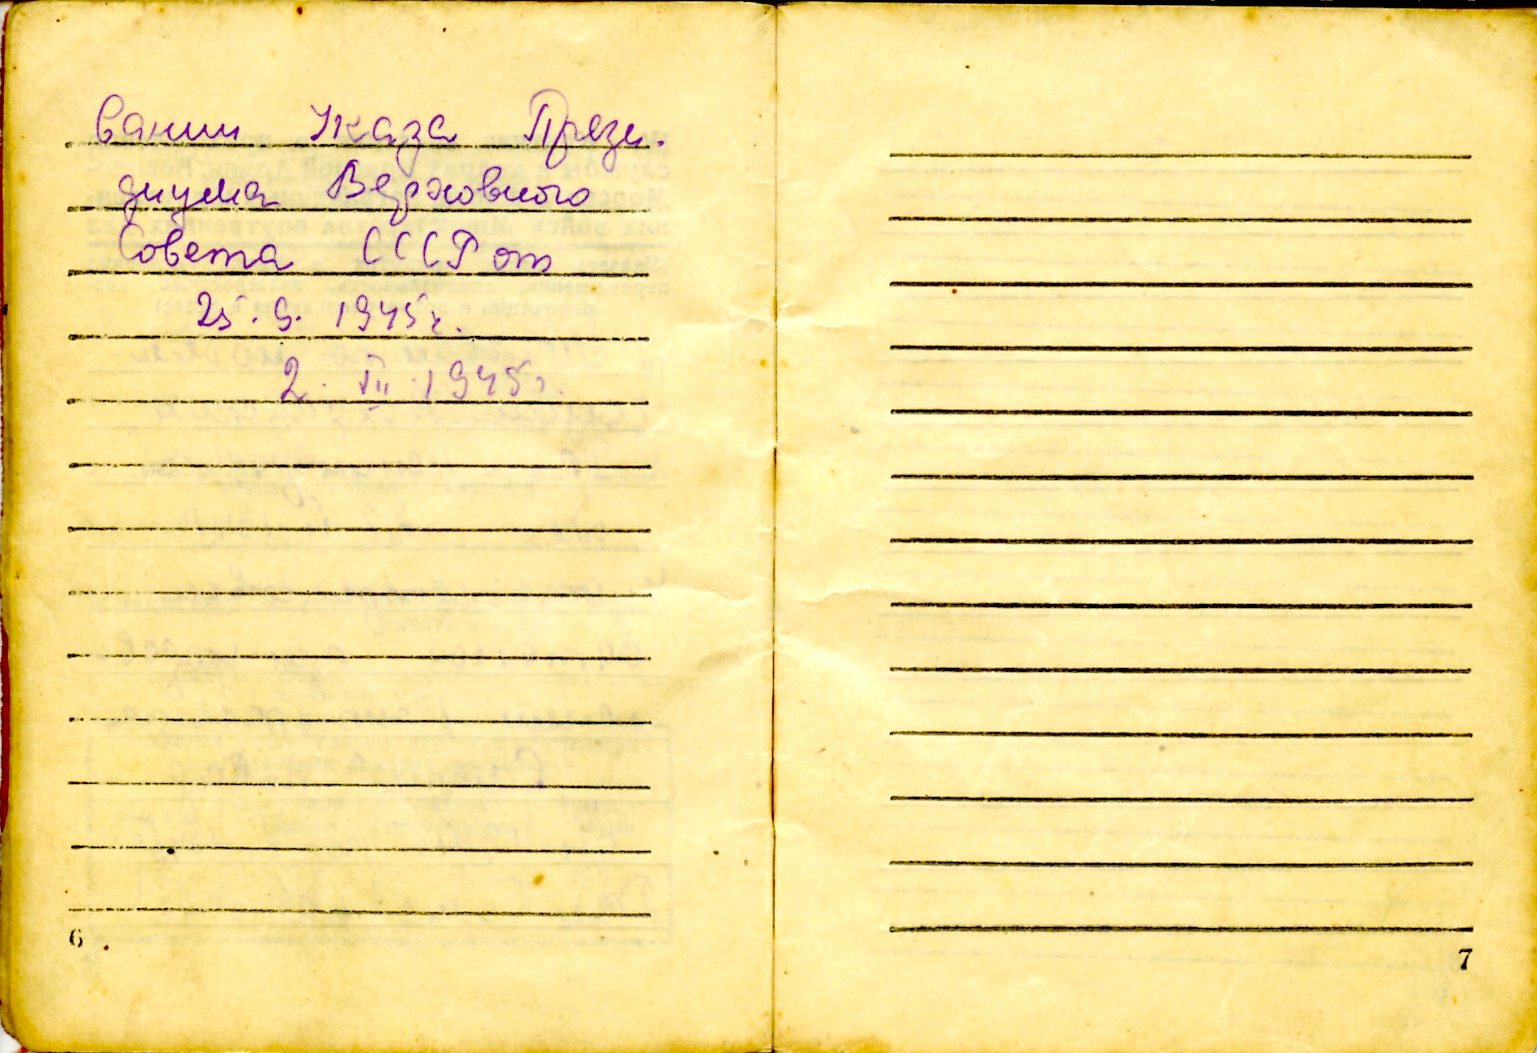 вании Указа Прези-
диума Верховного
Совета СССР от
25. 9. 1945 г.
2. VII. 1945 г.
6
7